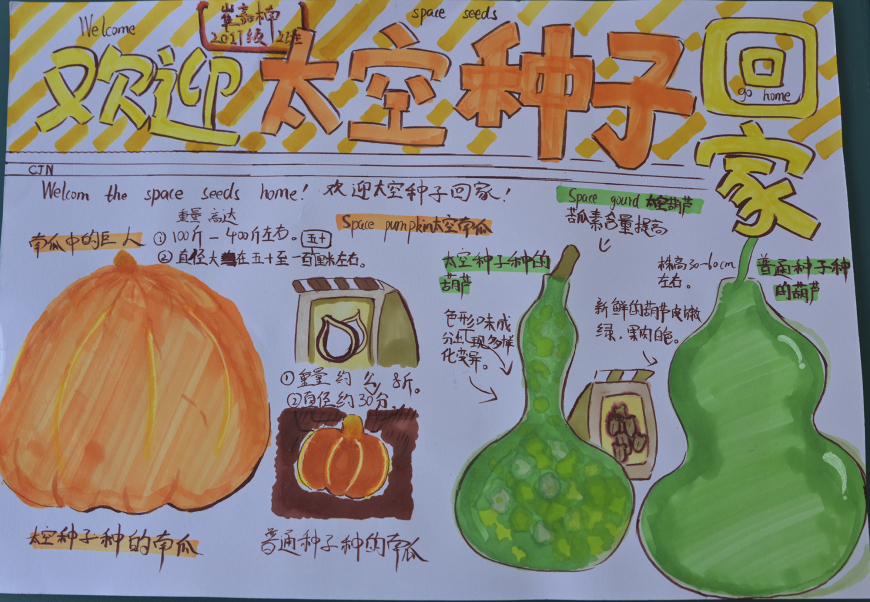 Welcome
崔嘉楠
2021级 22班
space seeds
欢迎太空种子回家
go home
CJN
Welcom the space seeds home! 欢迎太空种子回家!
重量 高达
南瓜中的巨人
① 100斤-400斤左右。
② 直径大in五十至一百厘米左右。
五十
Space pumpkin太空南瓜
① 重量约 8斤。
② 直径约30分
太空种子种的南瓜
普通种子种的南瓜
Space gourd 太空葫芦
苷素含量提高
太空种子种的
葫芦
色形味成
分出现多样
化变异。
株高30-60cm
左右。
普通种子种
的葫芦
新鲜的葫芦皮嫩
绿,果肉白色。